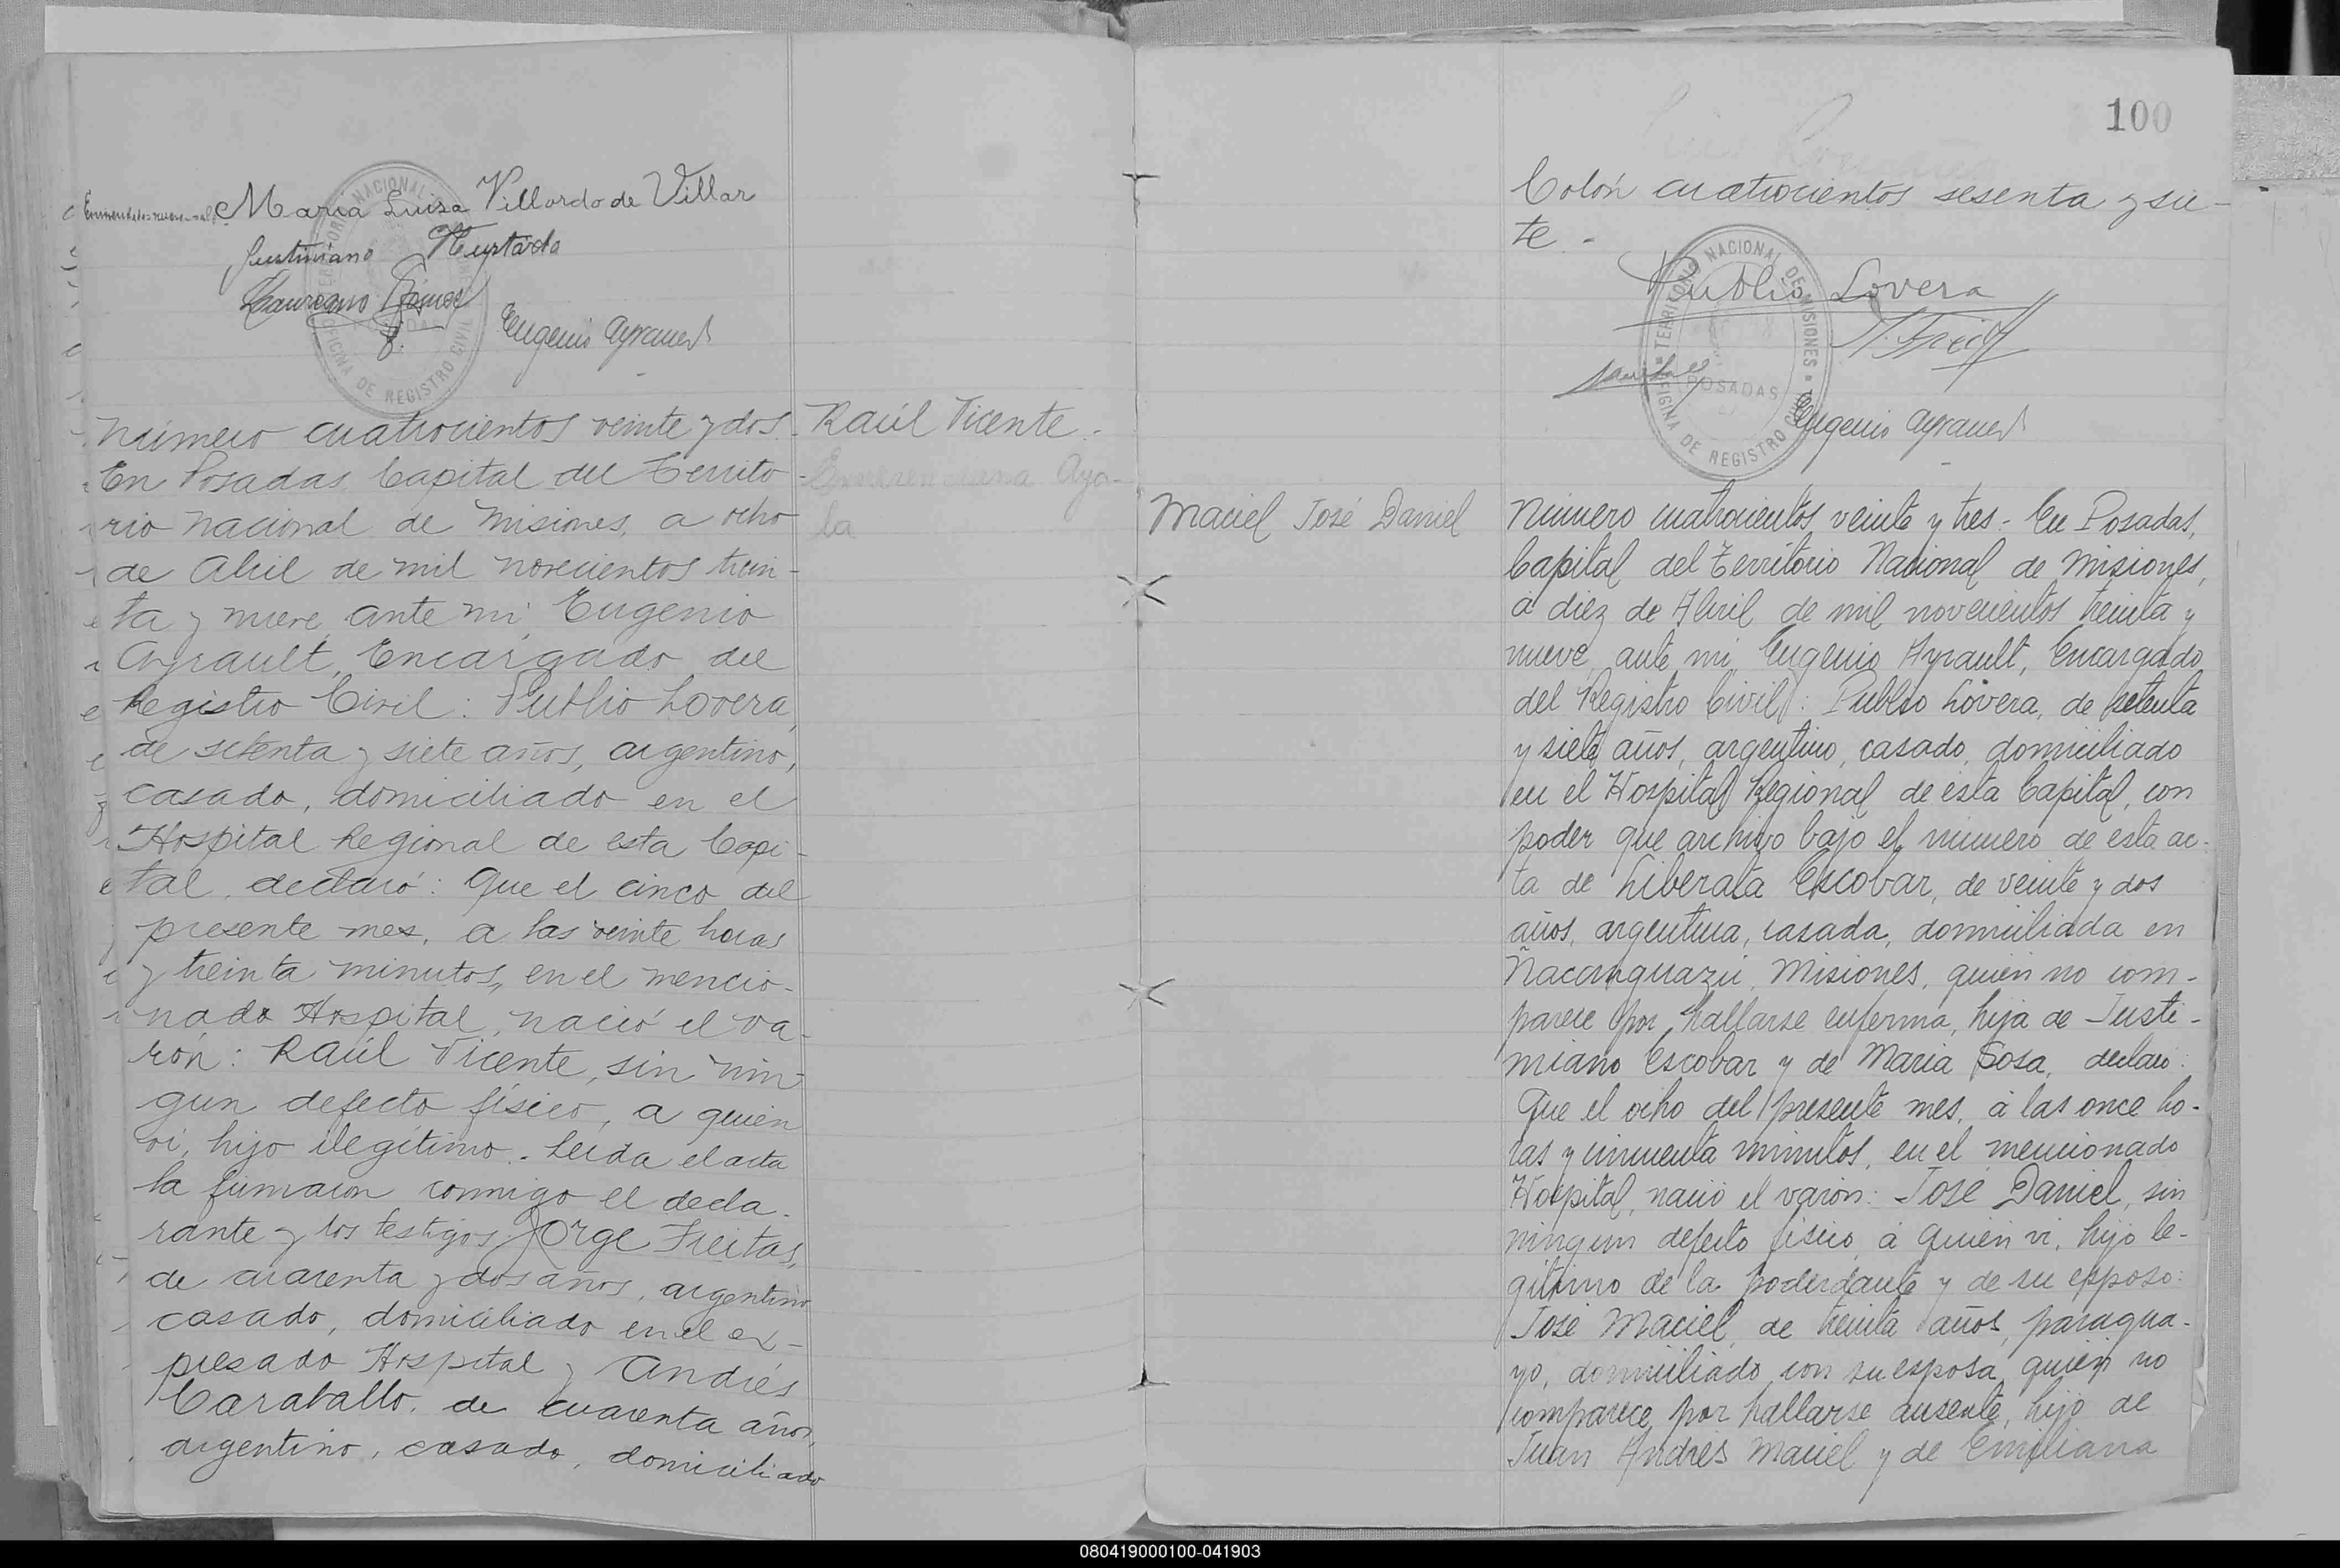 María Luisa Villordo de Villar
Justiniano Hurtado
Laureano
Eugenio Ayrault
TERRITORIO NACIONAL DE MISIONES
POSADAS
OFICINA DE REGISTRO CIVIL
Raúl Vicente.
Aya-
la
Número cuatrocientos veinte y dos.
En Posadas Capital del Territo-
rio Nacional de Misiones, a ocho
de Abril de mil novecientos trein-
ta y nueve, ante mi, Eugenio
Ayrault, Encargado del
Registro Civil: Publio Lovera,
de setenta y siete años, argentino,
casado, domiciliado en el
Hospital Regional de esta Capi-
tal, declaró: Que el cinco del
presente mes, a las veinte horas
y treinta minutos, en el mencio-
nado Hospital, nació el va-
rón: Raúl Vicente, sin nin-
gun defecto físico, a quien
vi, hijo ilegítimo.- Leida el acta
la firmaron conmigo el decla-
rante y los testigos Jorge Freitas,
de cuarenta y dos años, argentino
casado, domiciliado en el ex-
presado Hospital y Andrés
Caraballo, de cuarenta años,
argentino, casado, domiciliado
100
Colón cuatrocientos sesenta y sie-
te -
Publio Lovera
J. Freitas
Eugenio Ayrault
TERRITORIO NACIONAL DE MISIONES
POSADAS
OFICINA DE REGISTRO CIVIL
Maciel José Daniel
Número cuatrocientos veinte y tres - En Posadas,
Capital del Territorio Nacional de Misiones,
á diez de Abril de mil novecientos treinta y
nueve, ante mi, Eugenio Ayrault, Encargado
del Registro Civil: Publio Lovera, de setenta
y siete años, argentino, casado, domiciliado
en el Hospital Regional de esta Capital, con
poder que archivo bajo el número de esta ac-
ta de Liberata Escobar, de veinte y dos
años, argentina, casada, domiciliada en
Ñacanguazú, Misiones, quien no com-
parece por hallarse enferma, hija de Justi-
miano Escobar y de Maria Sosa, declaró:
Que el ocho del presente mes, á las once ho-
ras y cincuenta minutos, en el mencionado
Hospital, nació el varón: José Daniel, sin
ningun defecto fisico, á quien vi, hijo le-
gitimo de la poderdante y de su esposo:
José Maciel, de treinta años, paragua-
yo, domiciliado con su esposa, quien no
comparece por hallarse ausente, hijo de
Juan Andrés Maciel y de Emiliana
080419000100-041903